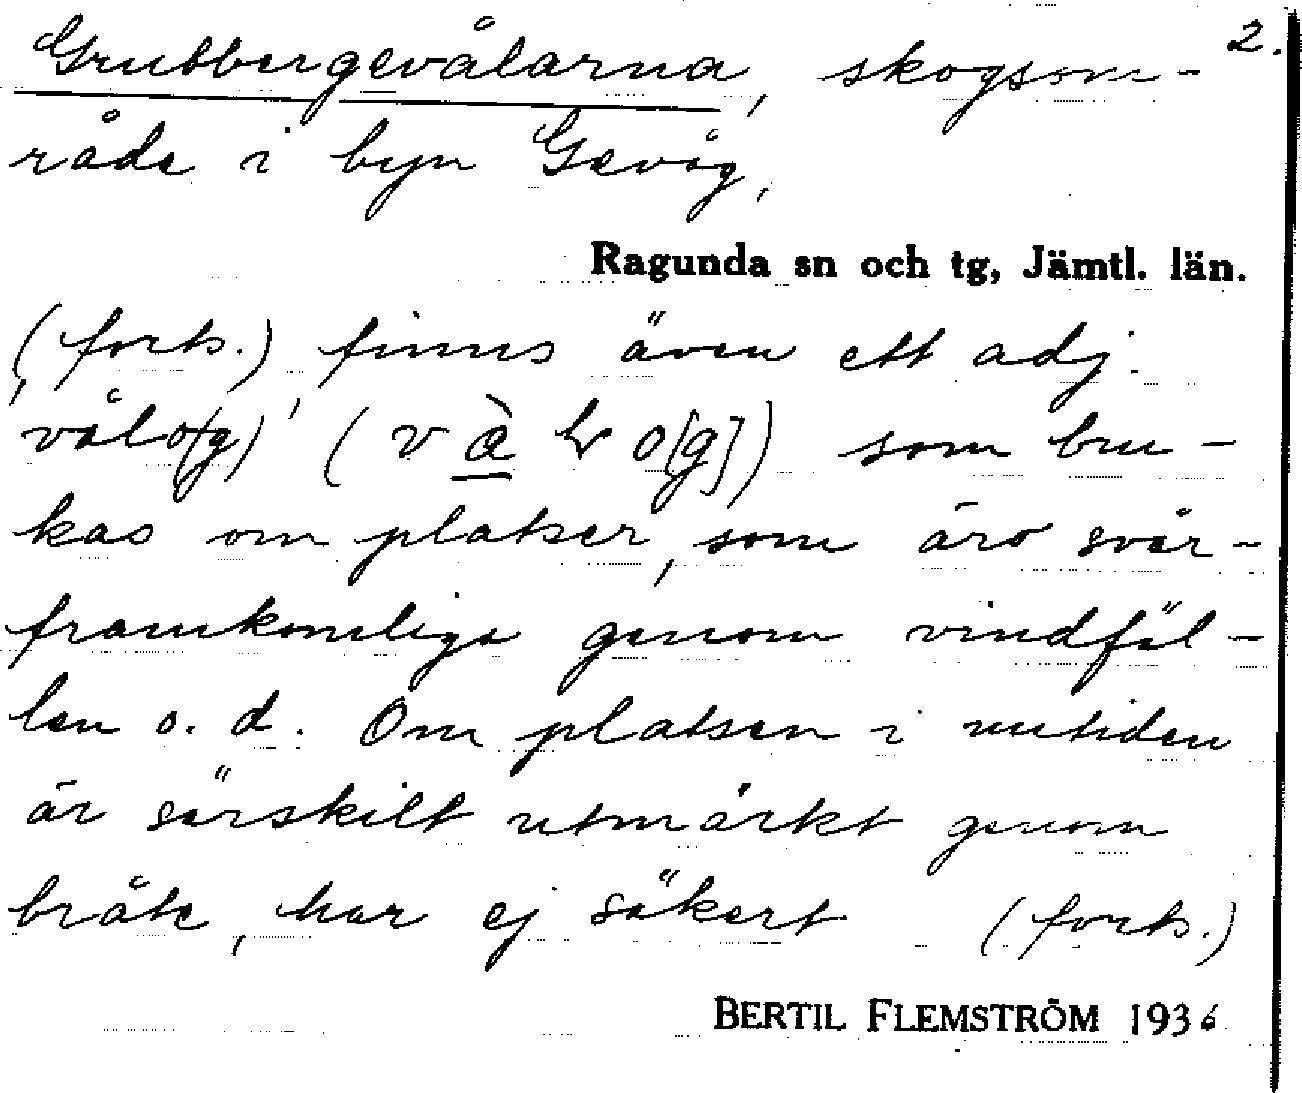 Grubbergevålarna, skogsom- 2.
råde i byn Gevåg,
Ragunda sn och tg, Jämtl. län.
(forts.) finns även ett adj.
'vålo(g)' (v à̲ ł o[g]) som bru-
kas om platser, som äro svår-
framkomliga genom vindfäl-
len o. d. Om platsen i nutiden
är särskilt utmärkt genom
bråte, har ej säkert (forts.)
BERTIL FLEMSTRÖM 1936